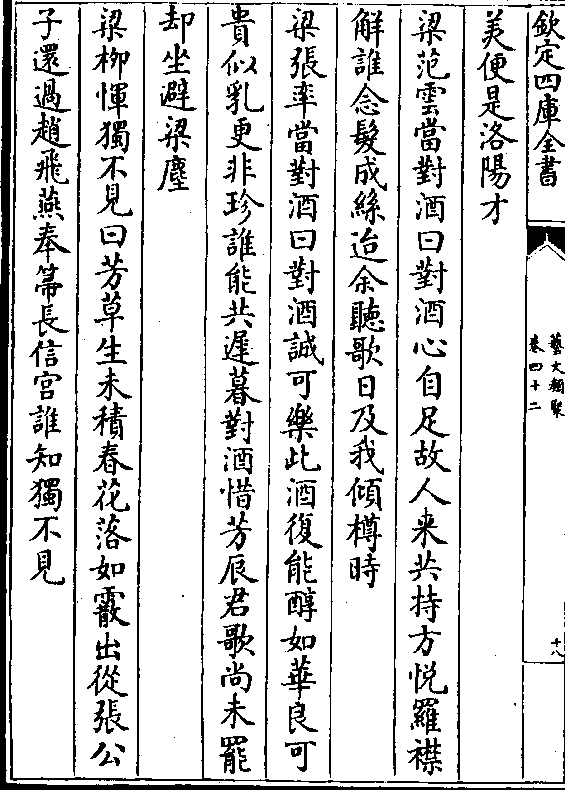 欽定四庫全書
藝文類聚
卷四十二
十八
美便是洛陽才
梁范雲當對酒曰對酒心自足故人来共持方悦羅襟
解誰念髮成絲迨余聽歌日及我傾樽時
梁張率當對酒曰對酒誠可樂此酒復能醇如華良可
貴似乳更非珍誰能共遲暮對酒惜芳辰君歌尚未罷
却坐避梁塵
梁栁惲獨不見曰芳草生未積春花落如霰出從張公
子還過趙飛燕奉箒長信宫誰知獨不見